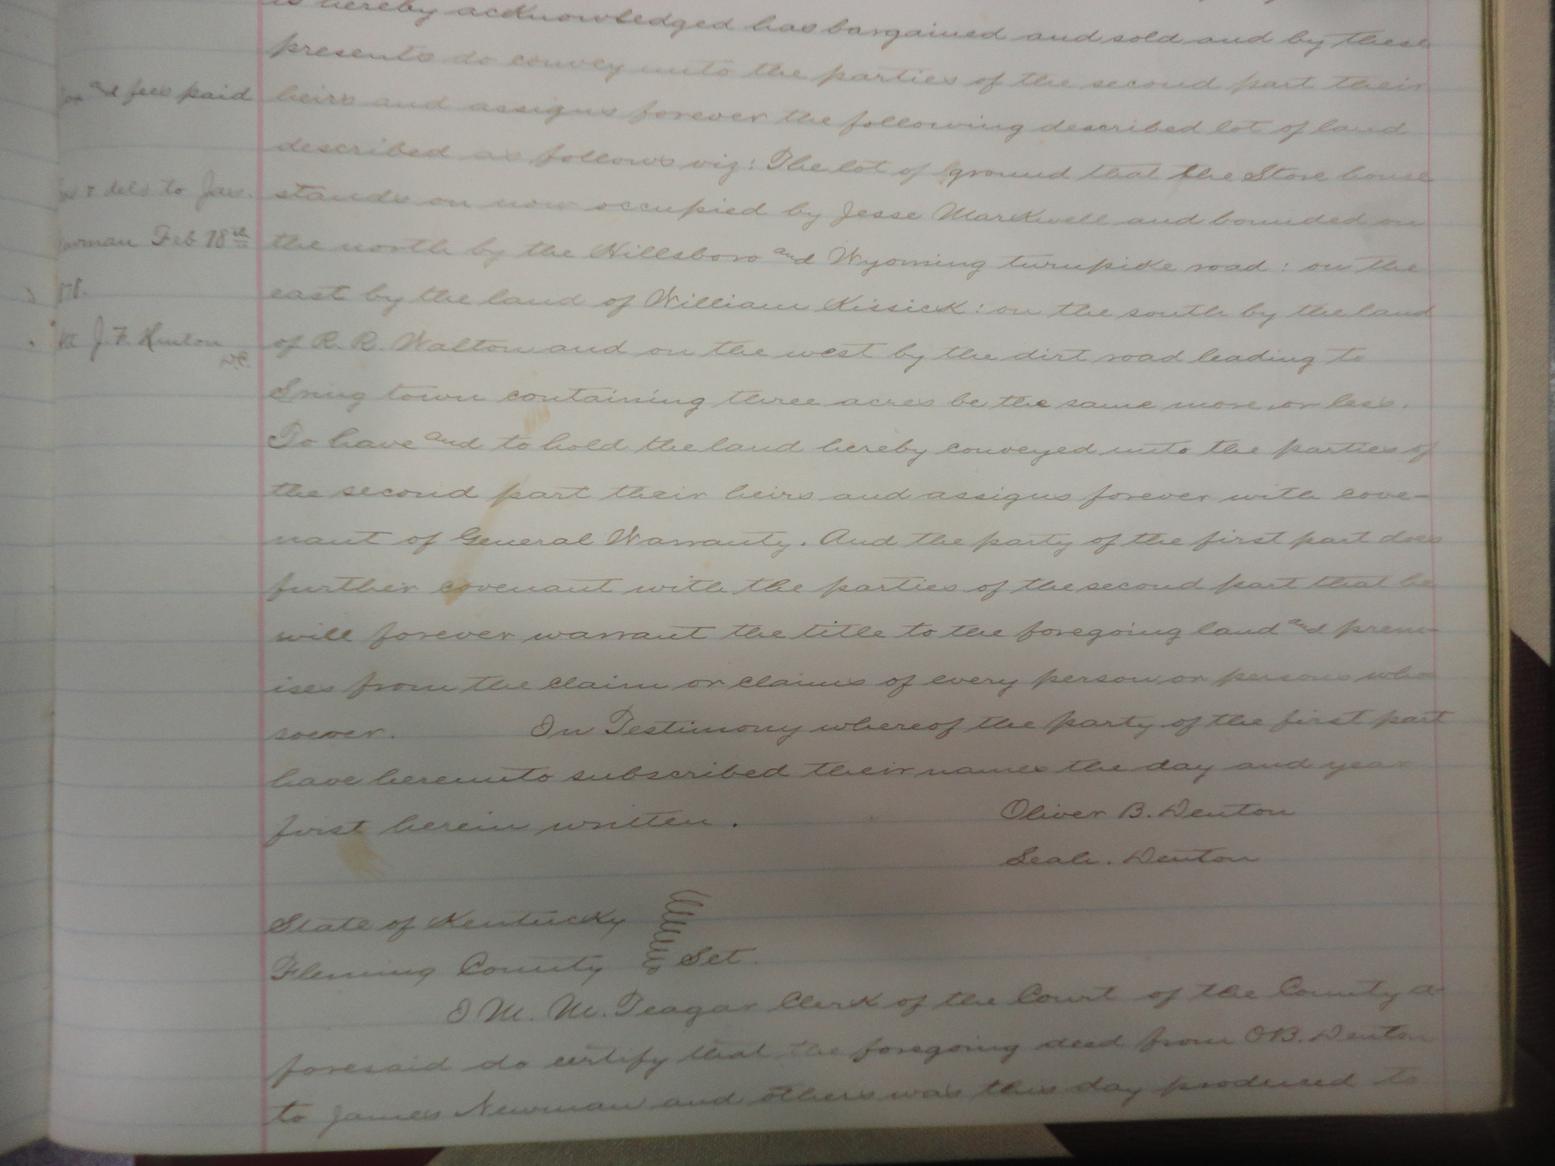 is hereby acknowledged has bargained and sold and by these
presents do convey unto the parties of the second part their
and fees paid
heirs and assigns forever the following described lot of land
described as follows viz: The lot of ground that the Store house
& deld to Jas.
stands on now occupied by Jesse Markwell and bounded on
Newman Feb 18th
the north by the Hillsboro and Wyoming turnpike road: on the
east by the land of William Kissick: on the south by the land
J. F. Hinton
of R. R. Walton and on the west by the dirt road leading to
D.C.
town containing three acres be the same more or less.
To have and to hold the land hereby conveyed unto the parties of
the second part their heirs and assigns forever with cove-
nant of General Warranty. And the party of the first part does
further covenant with the parties of the second part that he
will forever warrant the title to the foregoing land and prem-
ises from the claim or claims of every person or persons who
soever. In Testimony whereof the party of the first part
have hereunto subscribed their names the day and year
first herein written.
Oliver B. Denton
Denton
State of Kentucky
Fleming County Sct.
I M. M. Teagar Clerk of the Court of the County a-
foresaid do certify that the foregoing deed from O.B. Denton
to James Newman and others was this day produced to